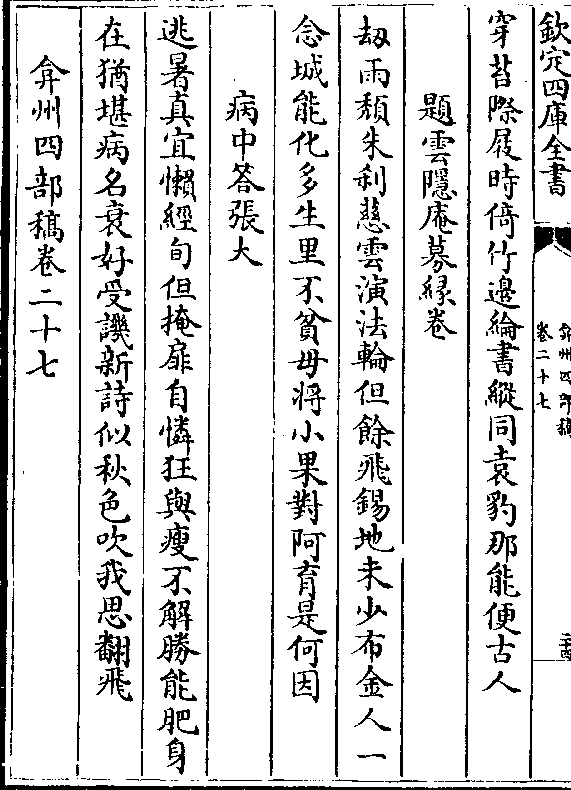 欽定四庫全書
弇州四部稿
卷二十七
穿苔際屐時倚竹邊綸書縱同袁豹那能便古人
題雲隱庵募緣卷
劫雨頽朱刹慈雲演法輪但餘飛錫地未少布金人一
念城能化多生里不貧毋將小果對阿育是何因
病中答張大
逃暑真宜懶經旬但掩扉自憐狂與瘦不解勝能肥身
在猶堪病名衰好受譏新詩似秋色吹我思翻飛
弇州四部稿卷二十七